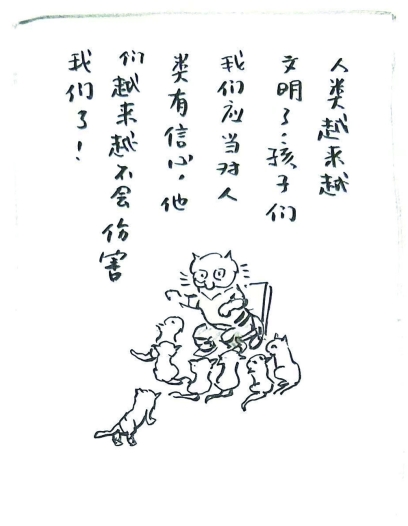 人类越来越
文明了，孩子们
我们应当对人
类有信心，他
们越来越不会伤害
我们了！